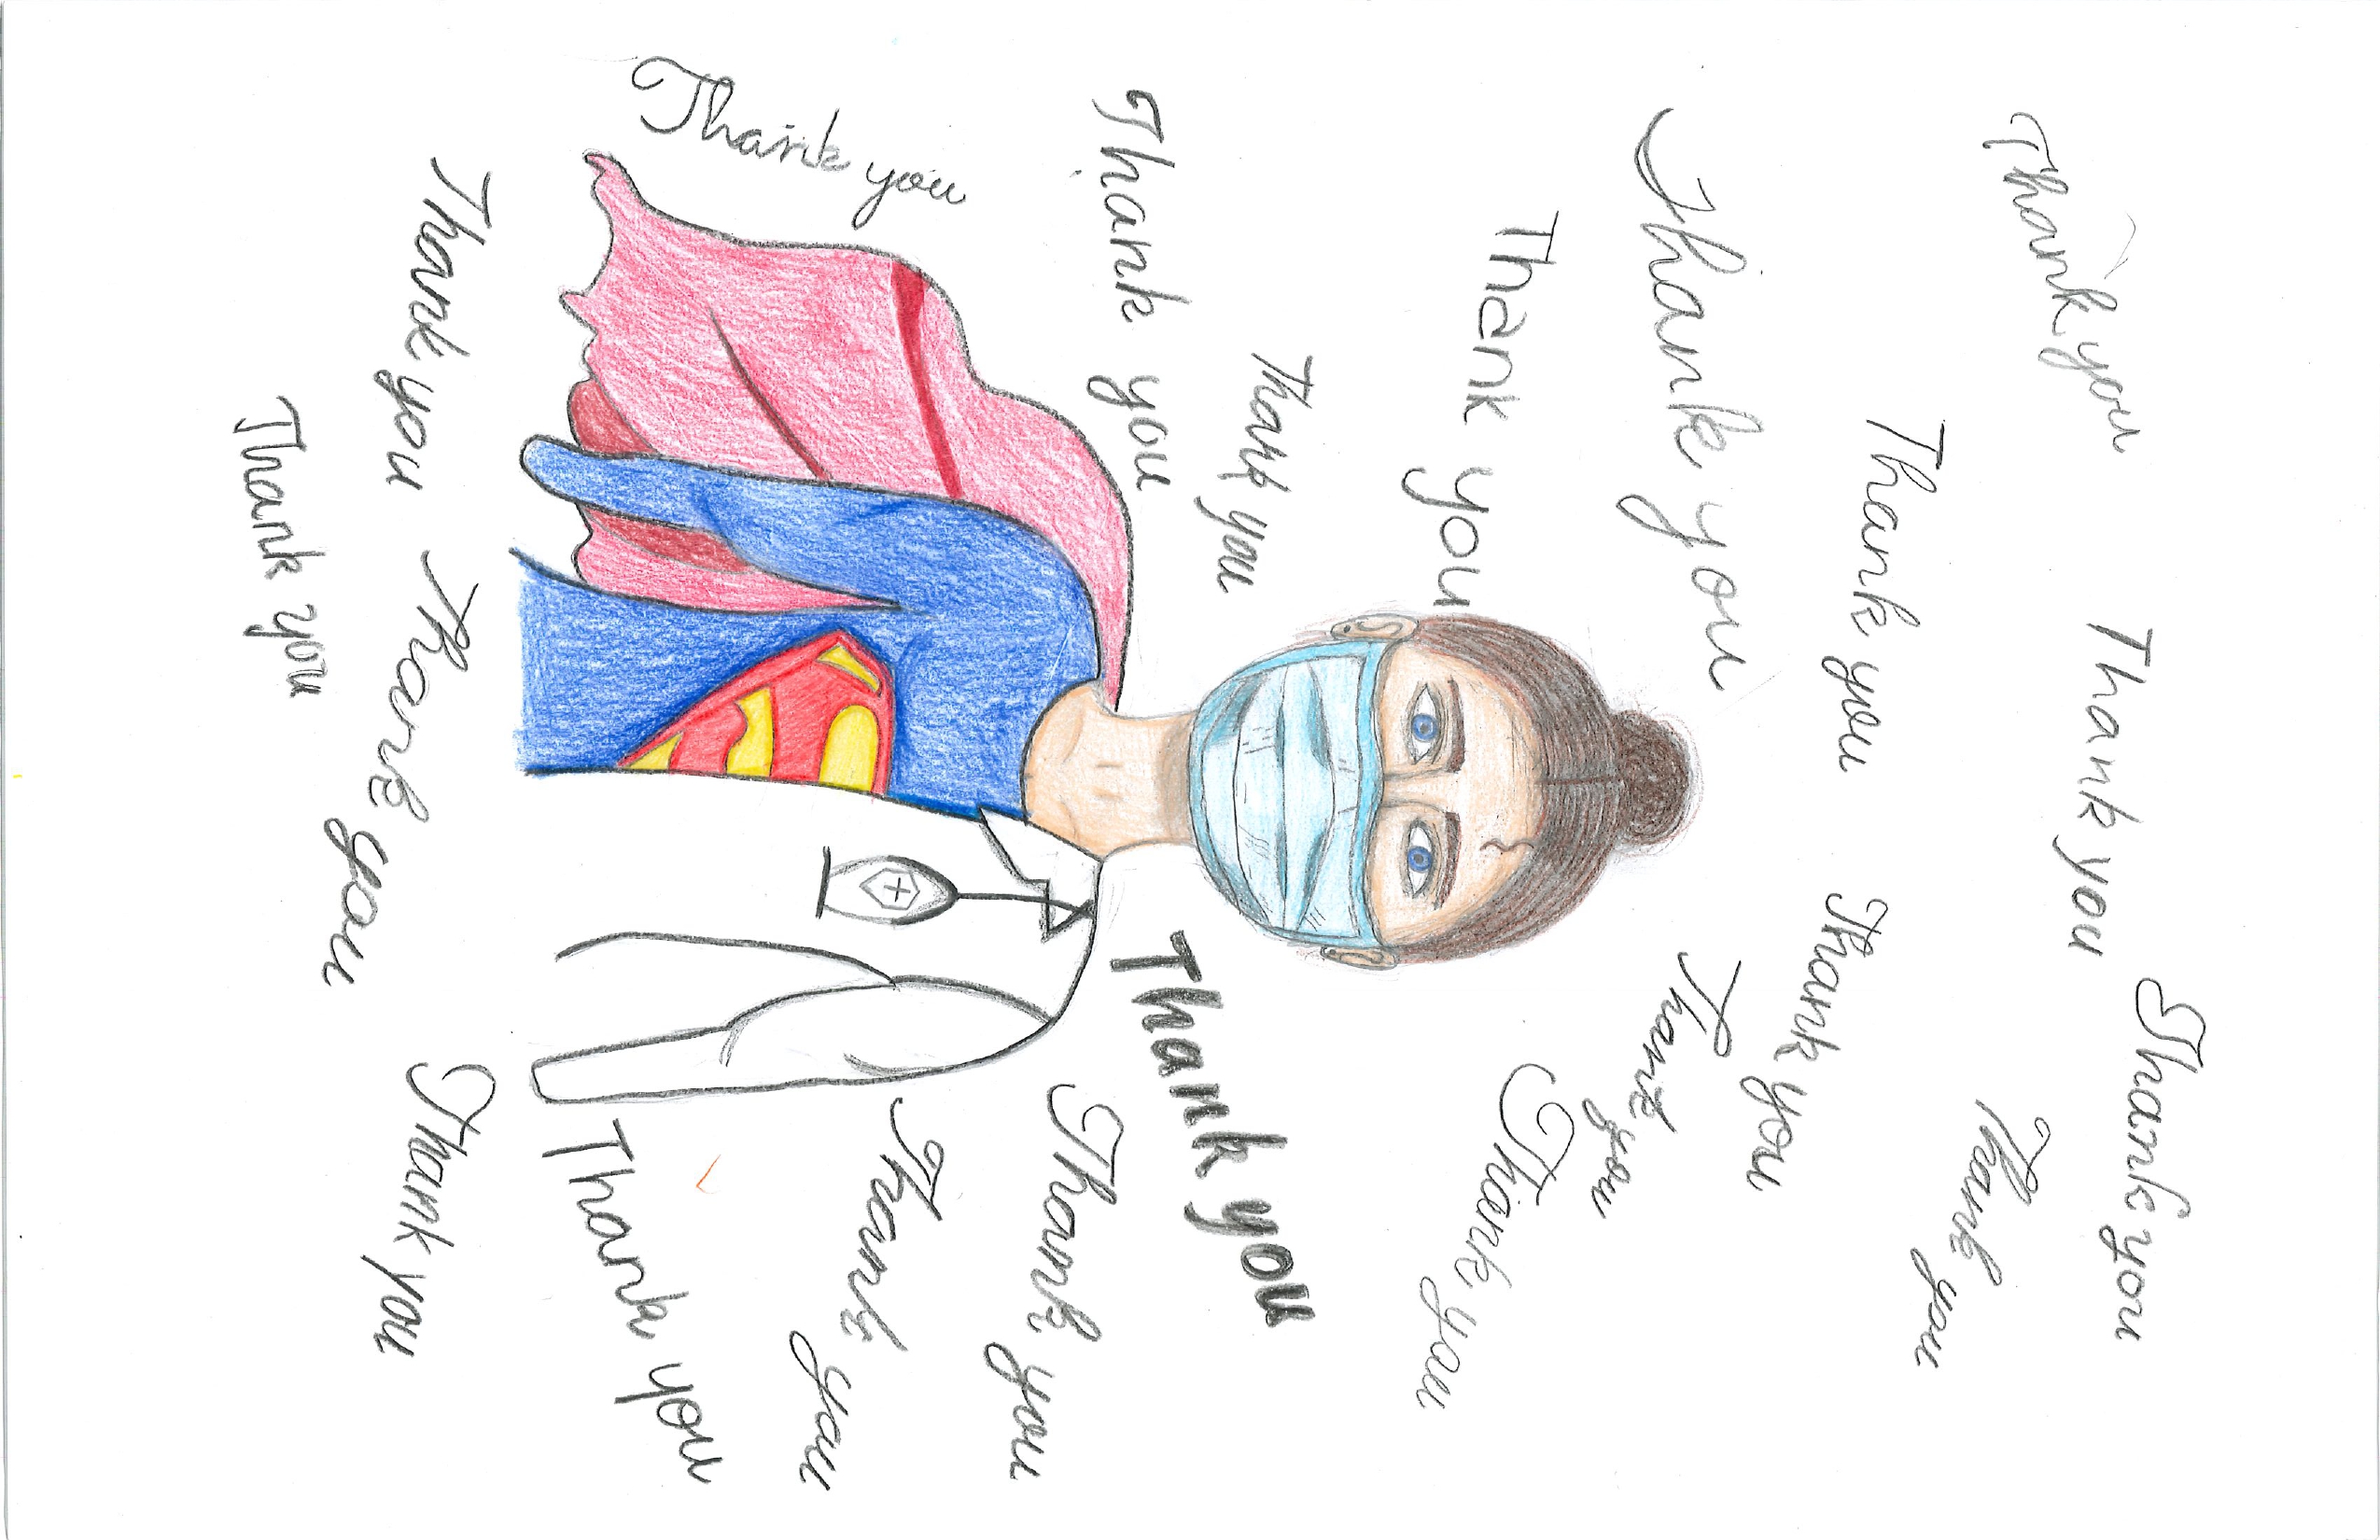 Thank you
Thank you
Thank you
Thank you
Thank you
Thank you
Thank you
Thank you
Thank you
Thank you
Thank you
Thank you
Thank you
Thank you
Thank you
Thank you
Thank you
Thank you
Thank you
Thank you
Thank you